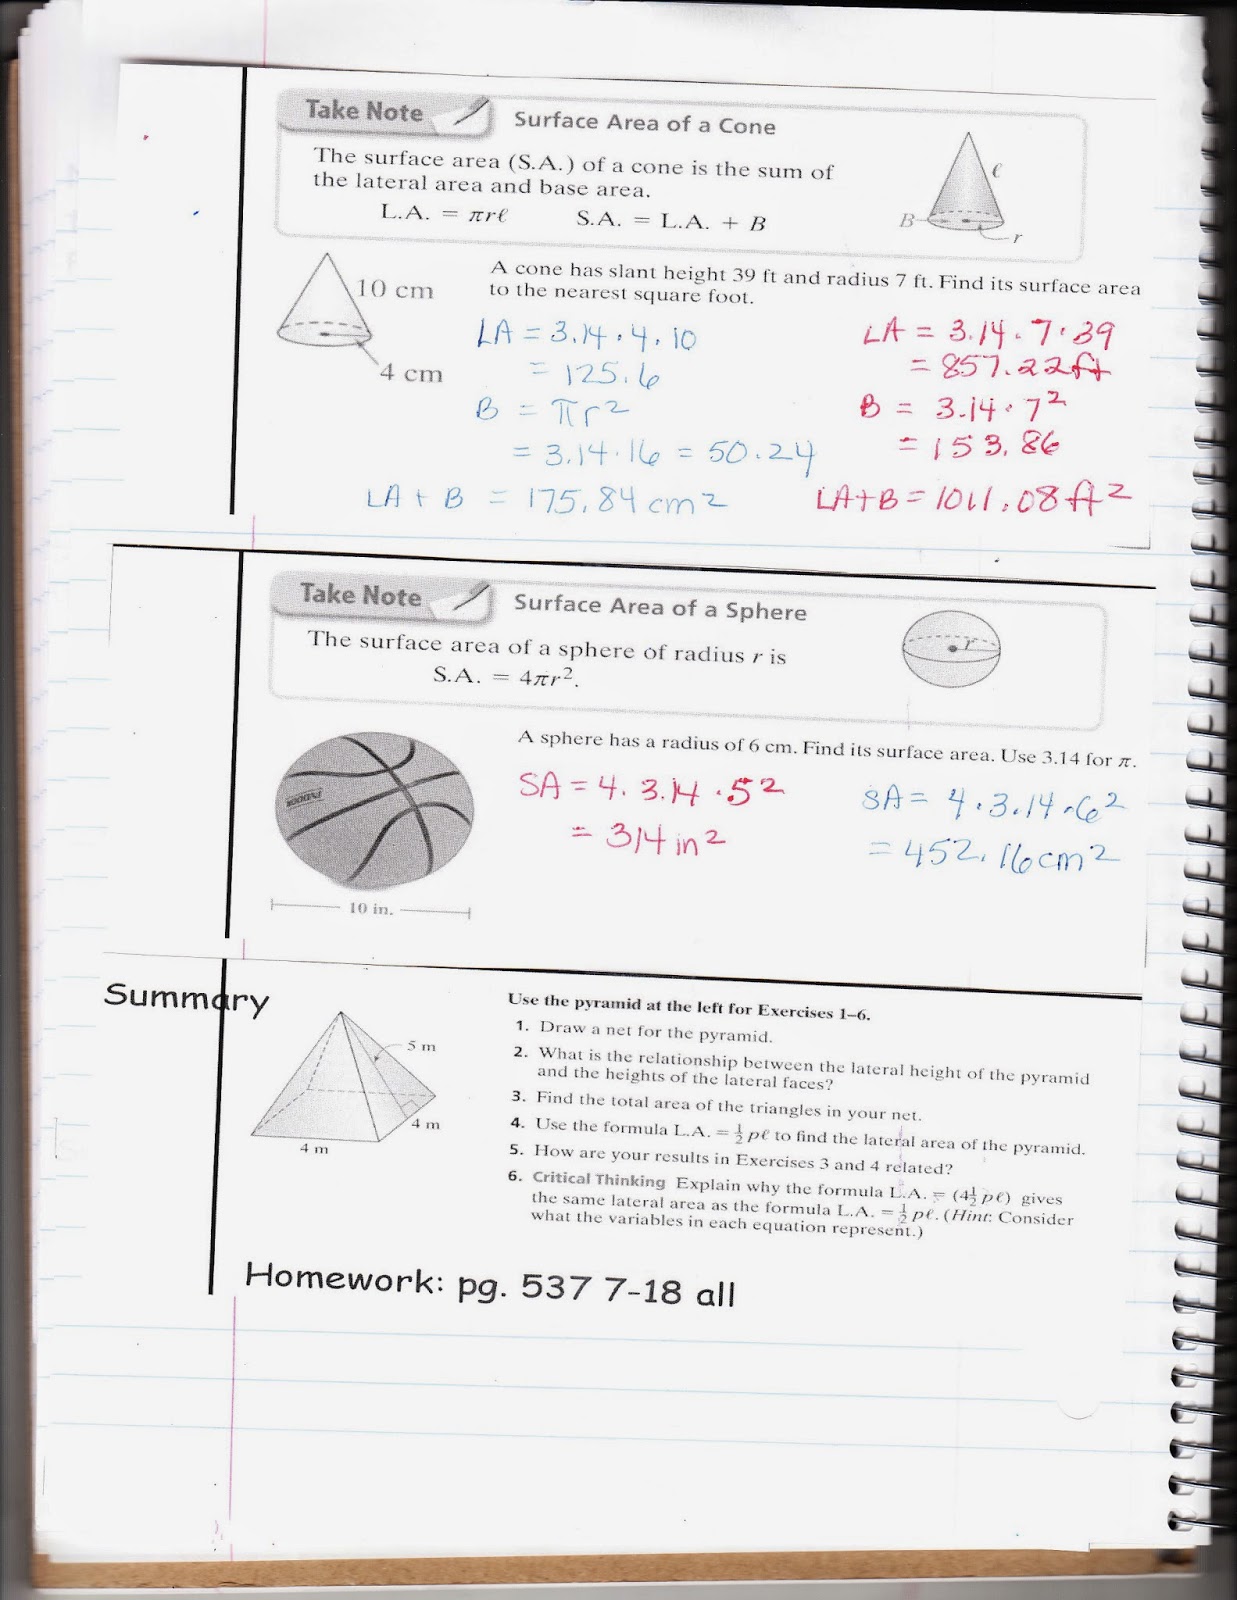 Take Note
Surface Area of a Cone
The surface area (S.A.) of a cone is the sum of
the lateral area and base area.
L.A. = πrℓ S.A. = L.A. + B
ℓ
B
r
10 cm
4 cm
A cone has slant height 39 ft and radius 7 ft. Find its surface area
to the nearest square foot.
LA = 3.14 · 4 · 10
= 125.6
B = πr²
= 3.14 · 16 = 50.24
LA + B = 175.84 cm²
LA = 3.14 · 7 · 39
= 857.22ft
B = 3.14 · 7²
= 153.86
LA+B = 1011.08 ft²
Take Note
Surface Area of a Sphere
The surface area of a sphere of radius r is
S.A. = 4πr².
r
A sphere has a radius of 6 cm. Find its surface area. Use 3.14 for π.
SA = 4 · 3.14 · 5²
= 314 in²
SA = 4 · 3.14 · 6²
= 452.16 cm²
10 in.
Summary
5 m
4 m
4 m
Use the pyramid at the left for Exercises 1–6.
1. Draw a net for the pyramid.
2. What is the relationship between the lateral height of the pyramid
and the heights of the lateral faces?
3. Find the total area of the triangles in your net.
4. Use the formula L.A. = ½ pℓ to find the lateral area of the pyramid.
5. How are your results in Exercises 3 and 4 related?
6. Critical Thinking Explain why the formula L.A. = (4½ pℓ) gives
the same lateral area as the formula L.A. = ½ pℓ. (Hint: Consider
what the variables in each equation represent.)
Homework: pg. 537 7-18 all